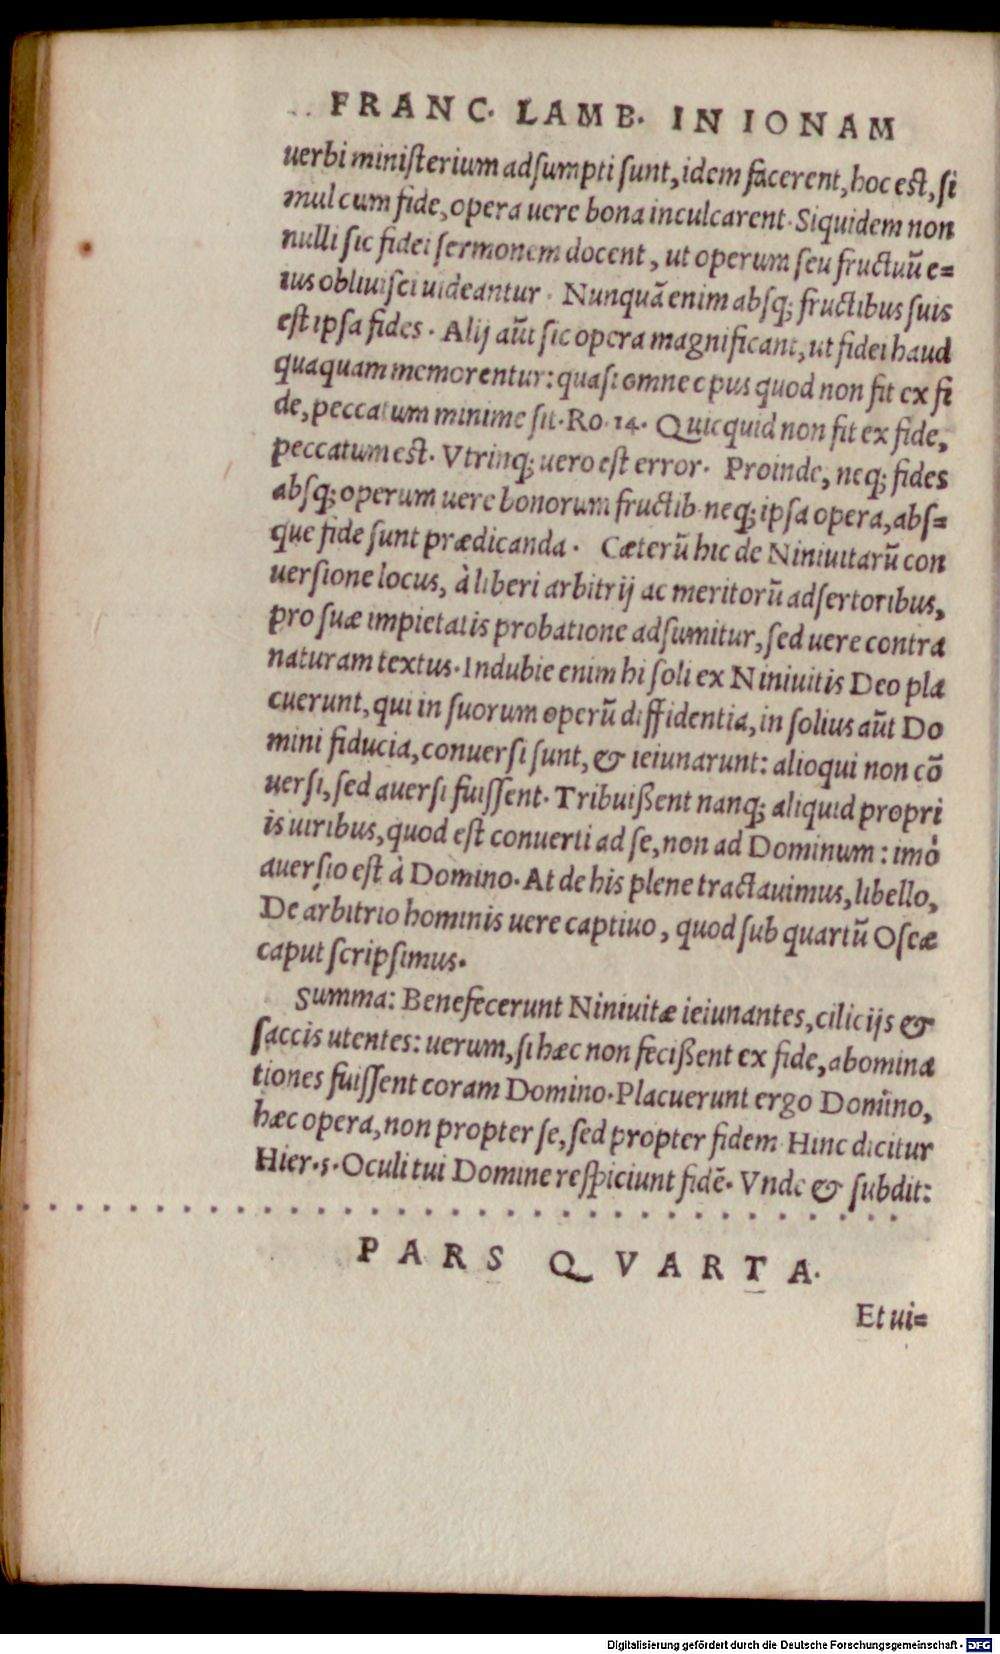 FRANC. LAMB. IN IONAM
uerbi miniſterium adſumpti ſunt, idem facerent, hoc eſt, ſi
mul cum fide, opera uere bona inculcarent. Siquidem non
nulli ſic fidei ſermonem docent, ut operum ſeu fructuū e=
ius obliuiſci uideantur. Nunquā enim absq; fructibus ſuis
eſt ipſa fides. Alij aūt ſic opera magnificant, ut fidei haud
quaquam memorentur: quaſi omne opus quod non fit ex fi
de, peccatum minime ſit. Ro. 14. Quicquid non fit ex fide,
peccatum eſt. Vtrinq; uero eſt error. Proinde, neq; fides
abſq; operum uere bonorum fructib. neq; ipſa opera, abſ=
que fide ſunt prædicanda. Cæterū hic de Niniuitarū con
uerſione locus, à liberi arbitrij ac meritorū adſertoribus,
pro ſuæ impietatis probatione adſumitur, ſed uere contra
naturam textus. Indubie enim hi ſoli ex Niniuitis Deo pla
cuerunt, qui in ſuorum operū diffidentia, in ſolius aūt Do
mini fiducia, conuerſi ſunt, & ieiunarunt: alioqui non cō
uerſi, ſed auerſi fuiſſent. Tribuißent nanq; aliquid propri
is uiribus, quod eſt conuerti ad ſe, non ad Dominum: imò
auerſio eſt à Domino. At de his plene tractauimus, libello,
De arbitrio hominis uere captiuo, quod ſub quartū Oſeæ
caput ſcripſimus.
Summa: Benefecerunt Niniuitæ ieiunantes, cilicijs &
ſaccis utentes: uerum, ſi hæc non fecißent ex fide, abomina
tiones fuiſſent coram Domino. Placuerunt ergo Domino,
hæc opera, non propter ſe, ſed propter fidem. Hinc dicitur
Hier. 5. Oculi tui Domine reſpiciunt fidē. Vnde & ſubdit:
PARS QVARTA.
Et ui=
Digitalisierung gefördert durch die Deutsche Forschungsgemeinschaft - DFG